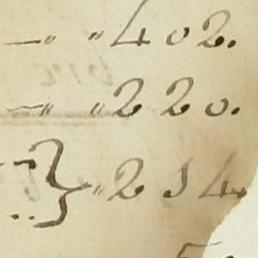 —„ „ 402.
—„ „ 220.
} „ 214